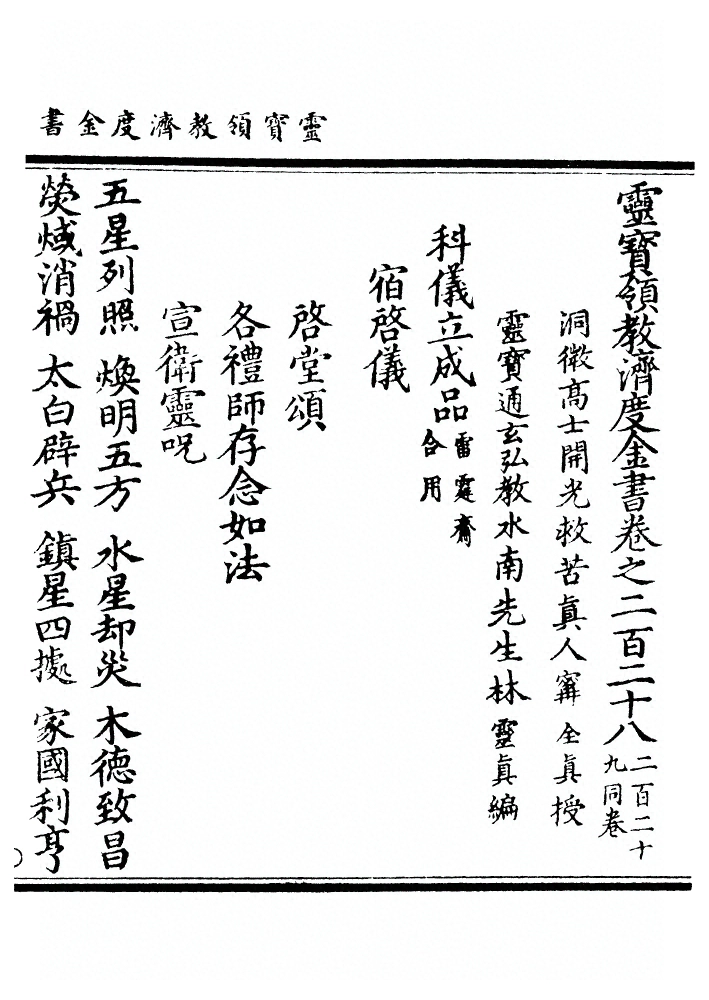 靈寶領教濟度金書
靈寶領教濟度金書卷之二百二十八二百二十九同卷
洞微高士開光救苦眞人甯全眞授
靈寶通玄弘教水南先生林靈眞編
科儀立成品雷霆齋合用
宿啓儀
啓堂頌
各禮師存念如法
宣衛靈呪
五星列照 煥明五方 水星却災 木德致昌
熒惑消禍 太白辟兵 鎮星四據 家國利亨